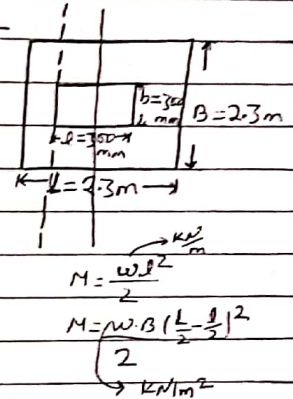 b=300
mm
B = 2.3m
l=300
mm
L = 2.3m
kN/m
M = wl²/2
M = w.B(L/2 - l/2)²/2
kN/m²